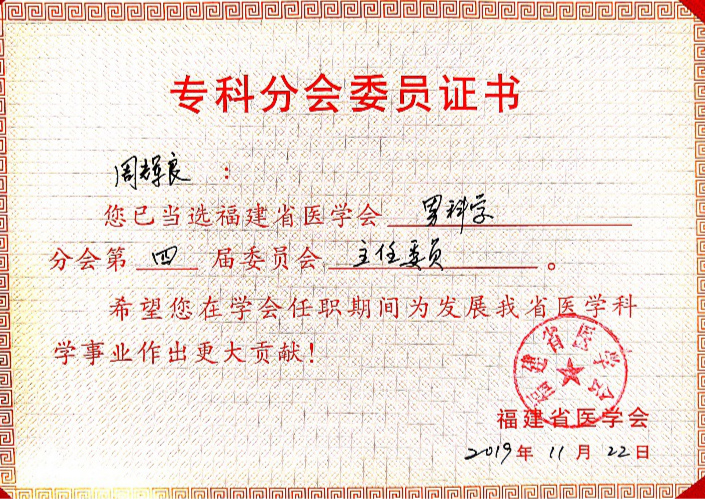 专科分会委员证书
周辉良：
您已当选福建省医学会 男科学
分会第 四 届委员会 主任委员 。
希望您在学会任职期间为发展我省医学科
学事业作出更大贡献！
福建省医学会
福建省医学会
2019年 11月 22日